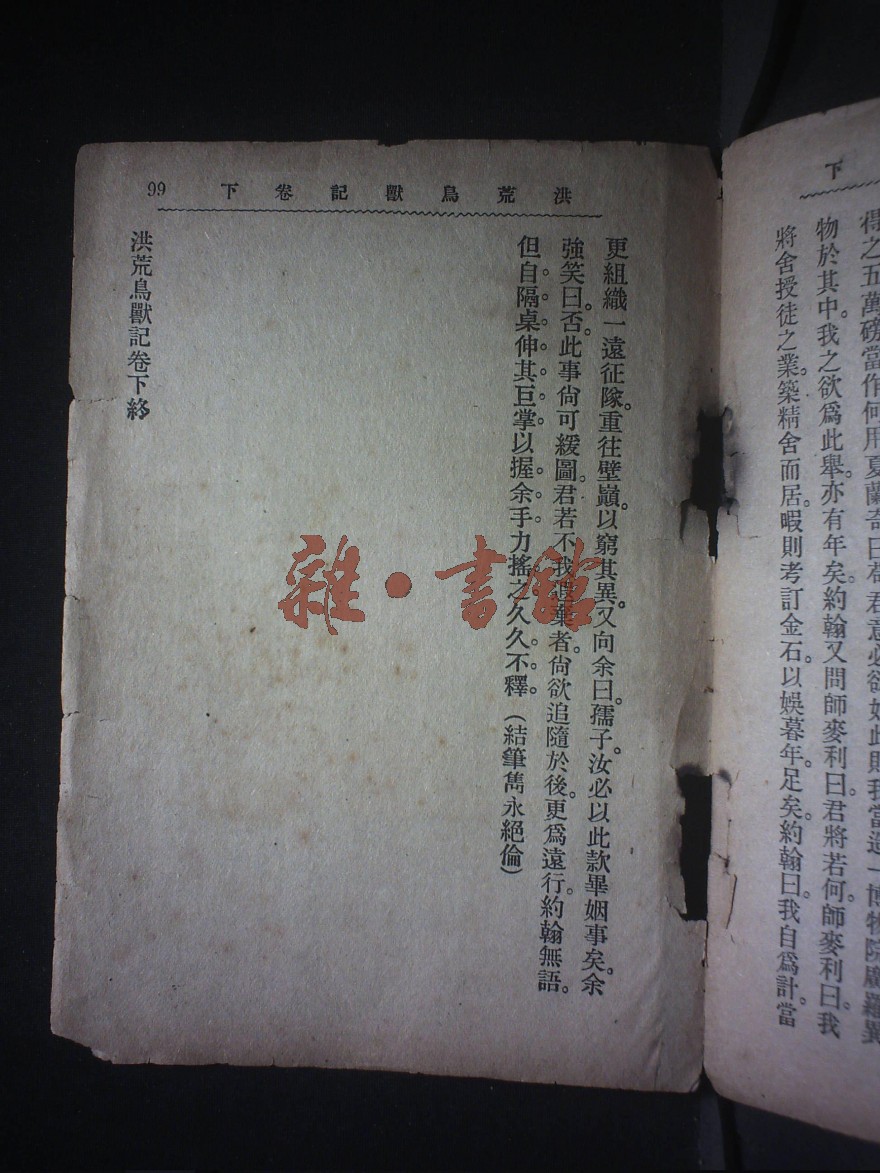 下
得之五萬磅當作何用夏蘭奇曰苟君意必欲如此則我當造一博物院廣羅異
物於其中。我之欲爲此舉。亦有年矣。約翰又問師麥利曰。君將若何。師麥利曰。我
將舍授徒之業。築精舍而居。暇則考訂金石。以娛暮年。足矣。約翰曰。我自爲計。當
洪荒鳥獸記卷下 99
更組織一遠征隊。重往壁巔。以窮其異。又向余曰。孺子。汝必以此款畢姻事矣。余
強笑曰。否。此事尙可緩圖。君若不我遐棄者。尙欲追隨於後。更爲遠行。約翰無語。
但自隔桌伸其巨掌以握余手力搖之久久不釋。(結筆雋永絕倫)
洪荒鳥獸記卷下終
雜·書館